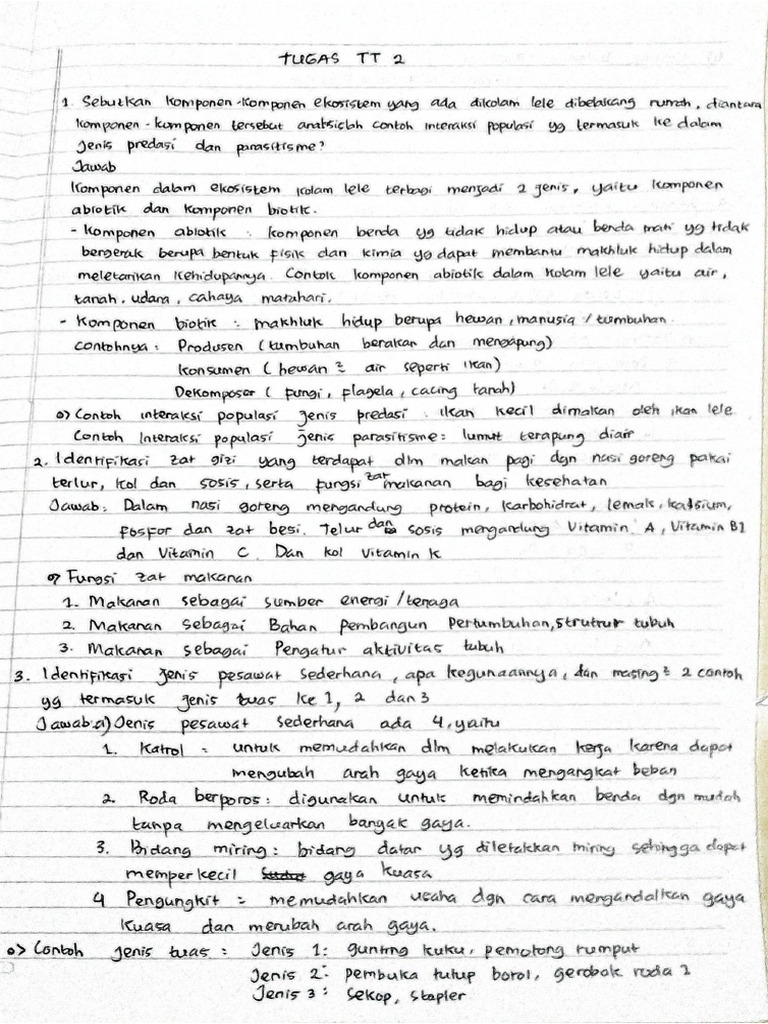 TUGAS TT 2
1. Sebutkan komponen-komponen ekosistem yang ada dikolam lele dibelakang rumah, diantara
komponen-komponen tersebut analisislah contoh interaksi populasi yg termasuk ke dalam
jenis predasi dan parasitisme?
Jawab
Komponen dalam ekosistem kolam lele terbagi menjadi 2 jenis, yaitu komponen
abiotik dan komponen biotik.
- Komponen abiotik : komponen benda yg tidak hidup atau benda mati yg tidak
bergerak berupa bentuk fisik dan kimia yg dapat membantu makhluk hidup dalam
meletarikan kehidupannya. Contoh komponen abiotik dalam kolam lele yaitu air,
tanah, udara, cahaya matahari.
- Komponen biotik : makhluk hidup berupa hewan, manusia / tumbuhan.
contohnya : Produsen (tumbuhan berakar dan mengapung)
Konsumen (hewan² air seperti ikan)
Dekomposer (fungi, flagela, cacing tanah)
o) Contoh interaksi populasi jenis predasi : ikan kecil dimakan oleh ikan lele
Contoh Interaksi populasi jenis parasitisme : lumut terapung diair
2. Identifikasi zat gizi yang terdapat dlm makan pagi dgn nasi goreng pakai
terlur, kol dan sosis, serta fungsi zat makanan bagi kesehatan
Jawab : Dalam nasi goreng mengandung protein, karbohidrat, lemak, kalsium,
fosfor dan zat besi. Telur dan sosis mengandung Vitamin A, Vitamin B1
dan Vitamin C. Dan kol Vitamin K
o) Fungsi zat makanan
1. Makanan sebagai sumber energi / tenaga
2. Makanan sebagai Bahan pembangun Pertumbuhan, strutrur tubuh
3. Makanan sebagai Pengatur aktivitas tubuh
3. Identifikasi jenis pesawat sederhana, apa kegunaannya, dan masing² 2 contoh
yg termasuk jenis tuas ke 1, 2 dan 3
Jawab : a) Jenis pesawat sederhana ada 4, yaitu
1. Katrol = untuk memudahkan dlm melakukan kerja karena dapat
mengubah arah gaya ketika mengangkat beban
2. Roda berporos : digunakan untuk memindahkan benda dgn mudah
tanpa mengeluarkan banyak gaya.
3. Bidang miring : bidang datar yg diletakkan miring sehingga dapat
memperkecil gaya kuasa
4 Pengungkit = memudahkan usaha dgn cara mengandalkan gaya
kuasa dan merubah arah gaya.
o> Contoh jenis tuas : Jenis 1 : gunting kuku, pemotong rumput
Jenis 2 : pembuka tutup botol, gerobak roda 2
Jenis 3 : sekop, stapler